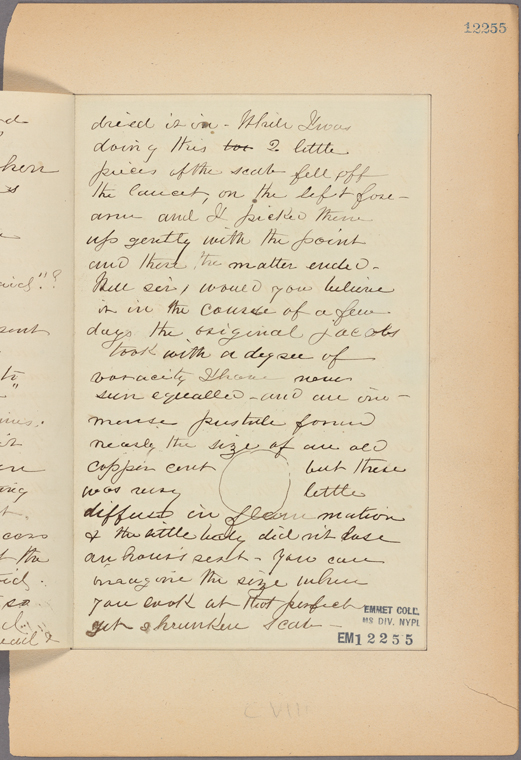 12255
dried it in - While I was
doing this 2 little
pieces of the scab fell off
the lancet, on the left fore-
arm and I picked them
up gently with the point
and there the matter ended -
But sir, would you believe
it in the course of a few
days the original Jacobs
took with a degree of
voracity I have never
seen equalled - and an im-
mense pustule formed
nearly the size of an old
copper cent but there
was very little
diffused in mation
& the little baby did n't lose
an hour's rest - You can
imagine the size when
you look at that perfect
yet shrunken scab -
EMMET COLL.
MS DIV. NYPL
EM12255
CVII